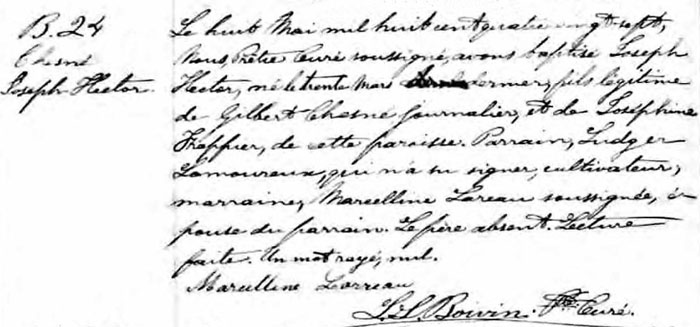 B. 24
Chesné
Joseph Hector.
Le huit Mai mil huit cent quatre vingt-sept,
Nous, Prêtre Curé soussigné, avons baptisé Joseph
Hector, né le trente Mars dernier, fils légitime
de Gilbert Chesné journalier, et de Joséphine
Frappier, de cette paroisse. Parrain, Ludger
Lamoureux, qui n'a su signer, cultivateur,
marraine, Marcelline Lareau soussignée, é-
pouse du parrain. Le père absent. Lecture
faite. Un mot rayé, nul.
Marcelline Lorreau
Boivin. Ptre Curé.